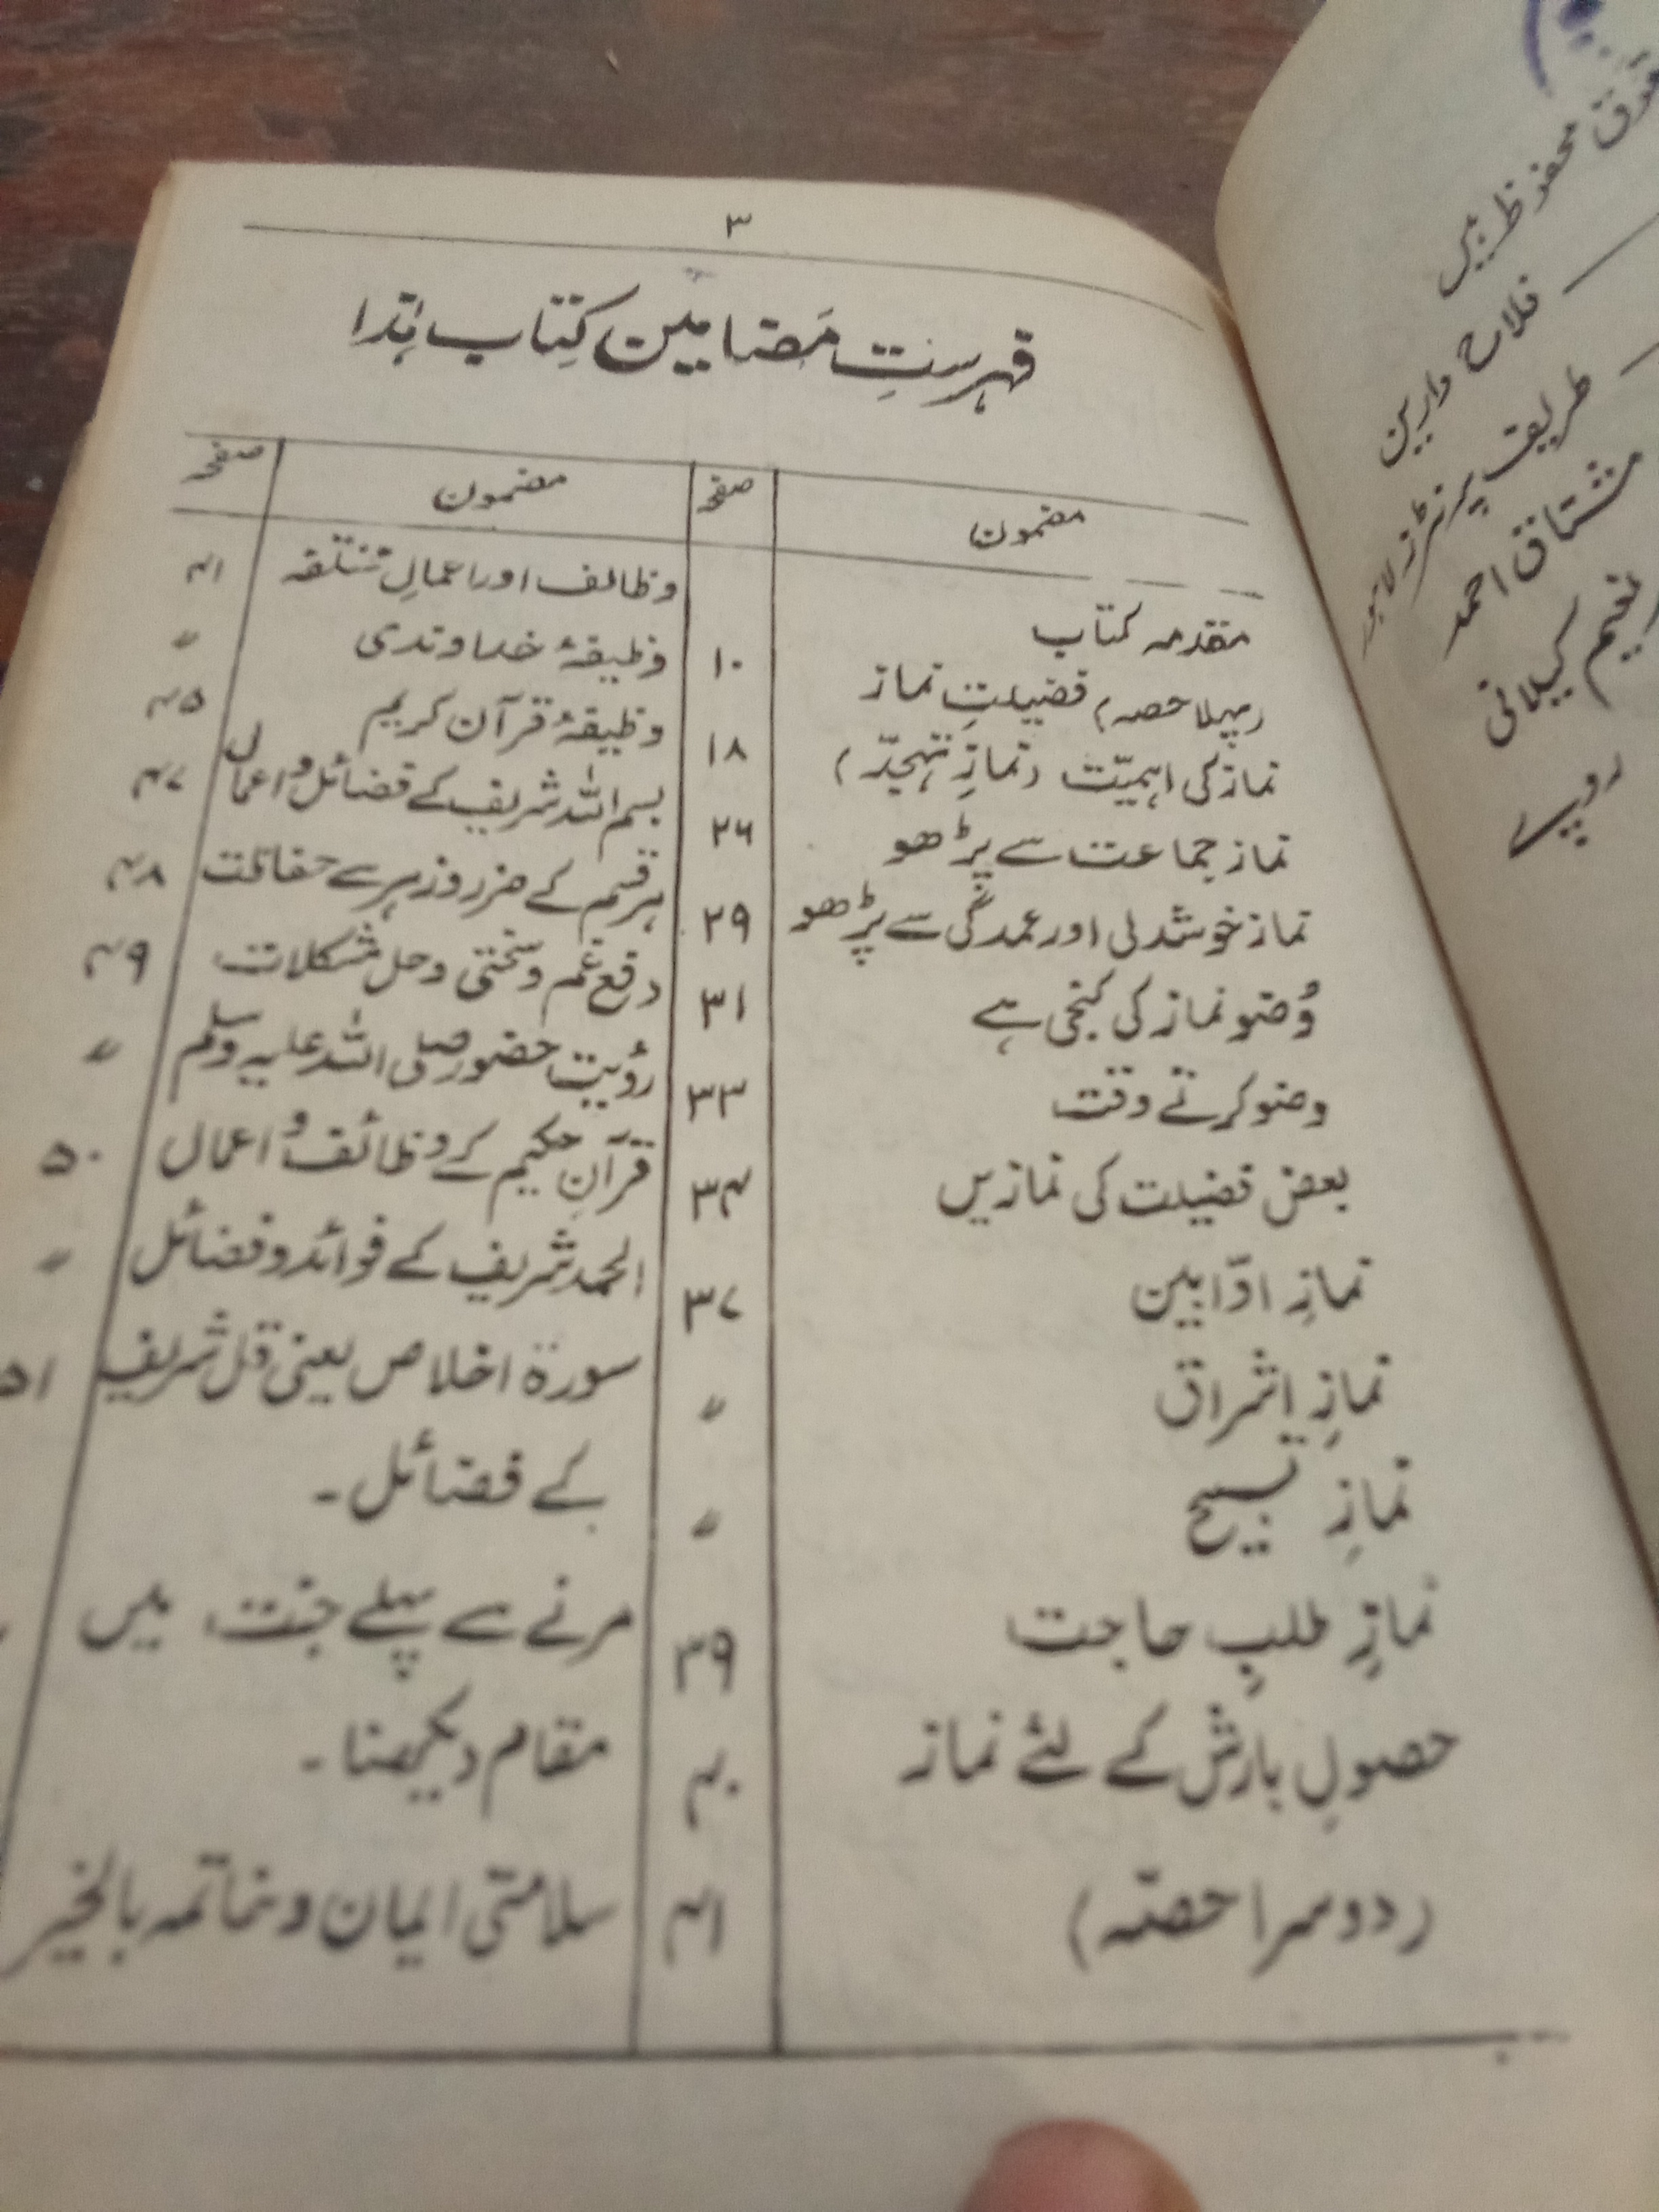 حقوق محفوظ ہیں
فلاح دارین
طریقت پرنٹرز لاہور
مشتاق احمد
نعیم گیلانی
روپے
۳
فہرستِ مَضامین کِتاب ہٰذا
مضمون صفحہ
مقدمہ کتاب
(پہلا حصہ) فضیلتِ نماز ۱۰
نماز کی اہمیّت (نمازِ تہجّد) ۱۸
نماز جماعت سے پڑھو ۲۶
نماز خوشدلی اور عمدگی سے پڑھو ۲۹
وُضو نماز کی کنجی ہے ۳۱
وضو کرتے وقت ۳۳
بعض فضیلت کی نمازیں ۳۴
نمازِ اوّابین ۳۷
نمازِ اشراق 〃
نمازِ تسبیح 〃
نمازِ طلبِ حاجت ۳۹
حصولِ بارش کے لئے نماز ۴۰
(دوسرا حصّہ) ۴۱
مضمون صفحہ
وظائف اور اعمالِ ۴۱
وظیفۂ خداوندی 〃
وظیفۂ قرآن کریم ۴۵
بسم اللہ شریف کے فضائل و اعمال ۴۷
ہر قسم کے ضرر و زہر سے حفاظت ۴۸
دفع غم و سختی و حل مشکلات ۴۹
رؤیت حضور صلی اللہ علیہ وسلم 〃
قرآن حکیم کے وظائف و اعمال ۵۰
الحمد شریف کے فوائد و فضائل 〃
سورة اخلاص یعنی قل شریف ۵۱
کے فضائل ۔
مرنے سے پہلے جنت میں
مقام دیکھنا ۔
سلامتی ایمان و خاتمہ بالخیر